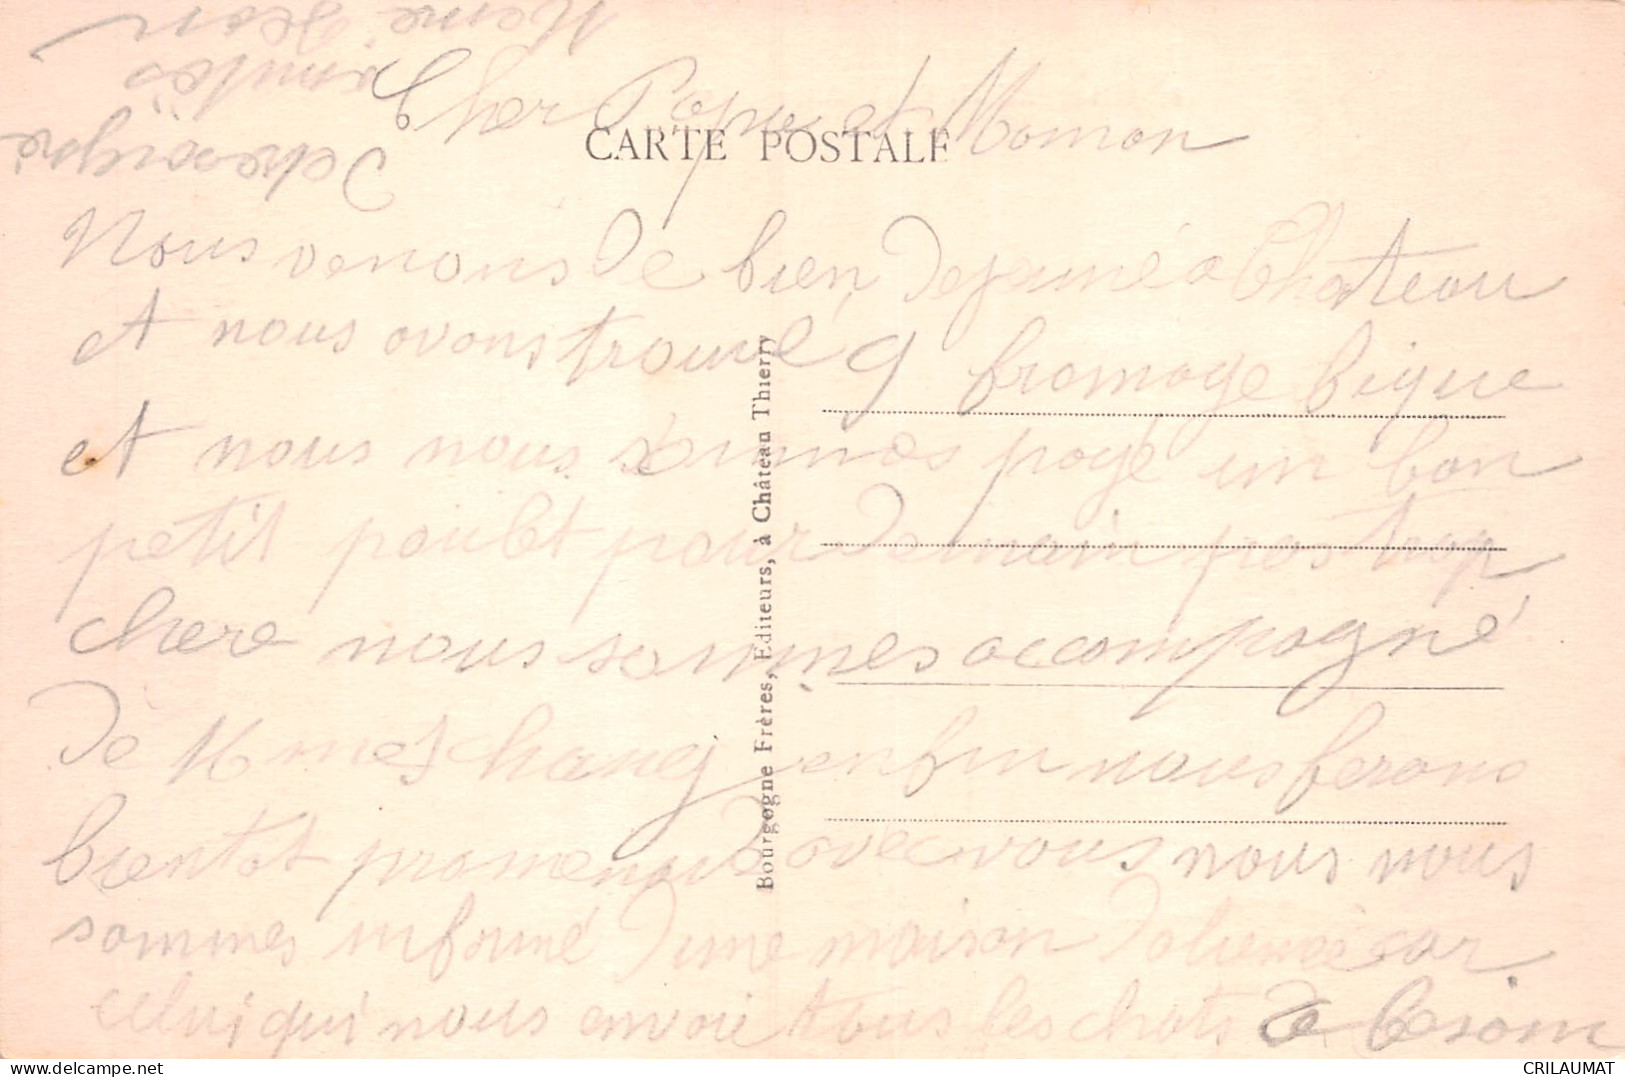 Cher Papa et Moman
CARTE POSTALE
Nous venons de bien dejeuné a Chateau
et nous avons trouvé 9 fromage bique
et nous nous sommes payé un bon
petit poulet pour demain pas trop
chere nous sommes accompagné
de Mme enfin nous ferons
bientot promenade avec vous nous nous
sommes informé d'une maison car
celui qui nous envoie tous les chats de besoin
Bourgogne Frères, Editeurs, à Château Thierry
CRILAUMAT